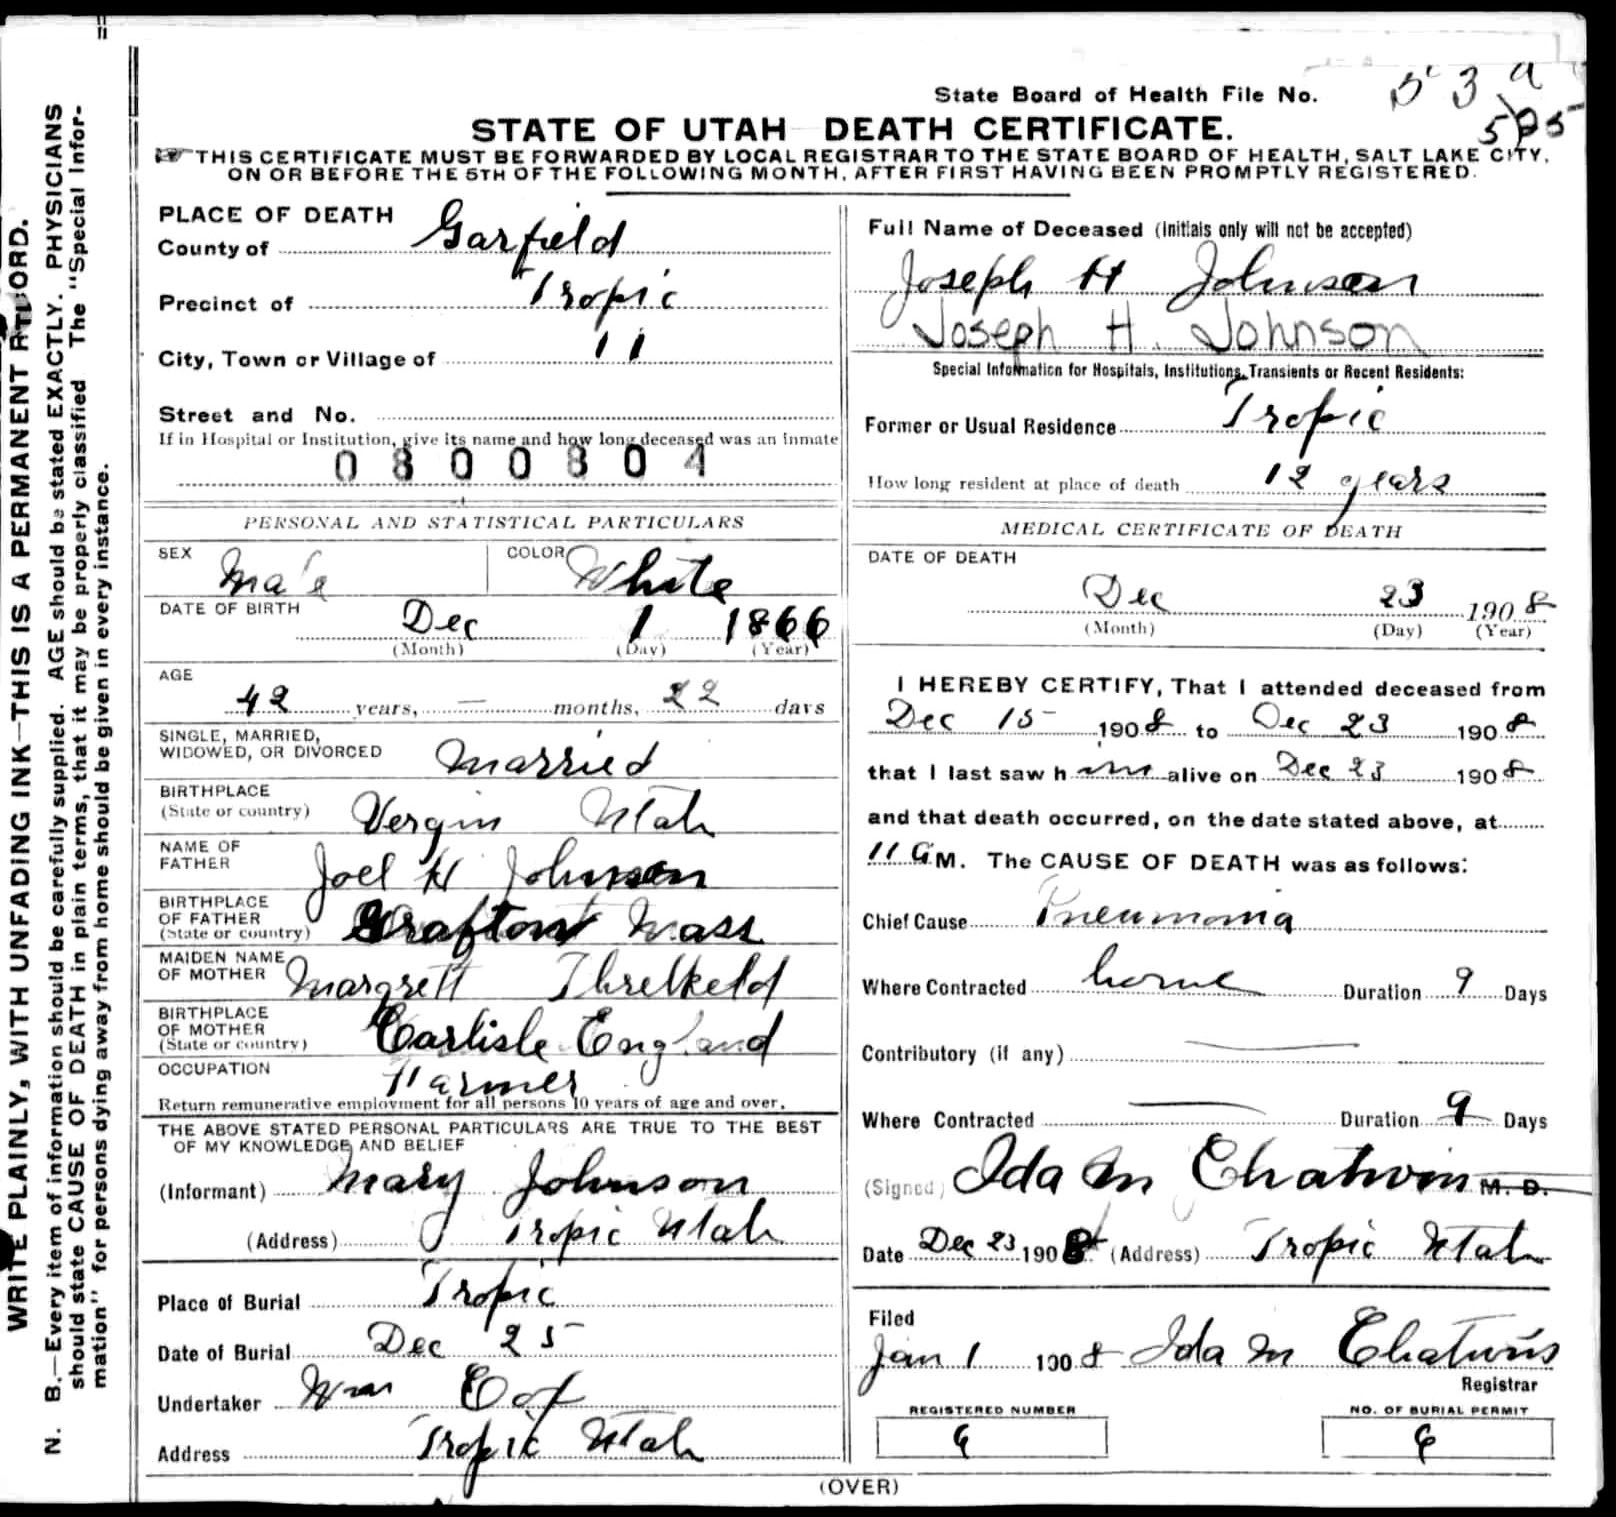 State Board of Health File No.
STATE OF UTAH DEATH CERTIFICATE.
THIS CERTIFICATE MUST BE FORWARDED BY LOCAL REGISTRAR TO THE STATE BOARD OF HEALTH, SALT LAKE CITY,
ON OR BEFORE THE 5TH OF THE FOLLOWING MONTH, AFTER FIRST HAVING BEEN PROMPTLY REGISTERED.
WRITE PLAINLY, WITH UNFADING INK—THIS IS A PERMANENT RECORD.
N. B.—Every item of information should be carefully supplied. AGE should be stated EXACTLY. PHYSICIANS
should state CAUSE OF DEATH in plain terms, that it may be properly classified The "Special Infor-
mation" for persons dying away from home should be given in every instance.
PLACE OF DEATH
County of Garfield
Precinct of Tropic
City, Town or Village of 11
Street and No.
If in Hospital or Institution, give its name and how long deceased was an inmate
0 8 0 0 8 0 4
PERSONAL AND STATISTICAL PARTICULARS
SEX Male COLOR White
DATE OF BIRTH Dec 1 1866
(Month) (Day) (Year)
AGE
42 years, — months, 22 days
SINGLE, MARRIED,
WIDOWED, OR DIVORCED Married
BIRTHPLACE
(State or country) Vergin Utah
NAME OF
FATHER Joel H Johnson
BIRTHPLACE
OF FATHER
(State or country) Grafton Mass
MAIDEN NAME
OF MOTHER Margrett Threlkeld
BIRTHPLACE
OF MOTHER
(State or country) Carlisle England
OCCUPATION Farmer
Return remunerative employment for all persons 10 years of age and over.
THE ABOVE STATED PERSONAL PARTICULARS ARE TRUE TO THE BEST
OF MY KNOWLEDGE AND BELIEF
(Informant) Mary Johnson
(Address) Tropic Utah
Place of Burial Tropic
Date of Burial Dec 25
Undertaker Wm Cox
Address Tropic Utah
Full Name of Deceased (Initials only will not be accepted)
Joseph H Johnson
Joseph H. Johnson
Special Information for Hospitals, Institutions, Transients or Recent Residents:
Former or Usual Residence Tropic
How long resident at place of death 12 years
MEDICAL CERTIFICATE OF DEATH
DATE OF DEATH
Dec 23 1908
(Month) (Day) (Year)
I HEREBY CERTIFY, That I attended deceased from
Dec 15 1908 to Dec 23 1908
that I last saw him alive on Dec 23 1908
and that death occurred, on the date stated above, at
11 a M. The CAUSE OF DEATH was as follows:
Chief Cause Pneumonia
Where Contracted home Duration 9 Days
Contributory (if any)
Where Contracted Duration 9 Days
(Signed) Ida M Chatwin M. D.
Date Dec 23 1908 (Address) Tropic Utah
Filed
Jan 1 1908 Ida M Chatwin
Registrar
REGISTERED NUMBER NO. OF BURIAL PERMIT
(OVER)